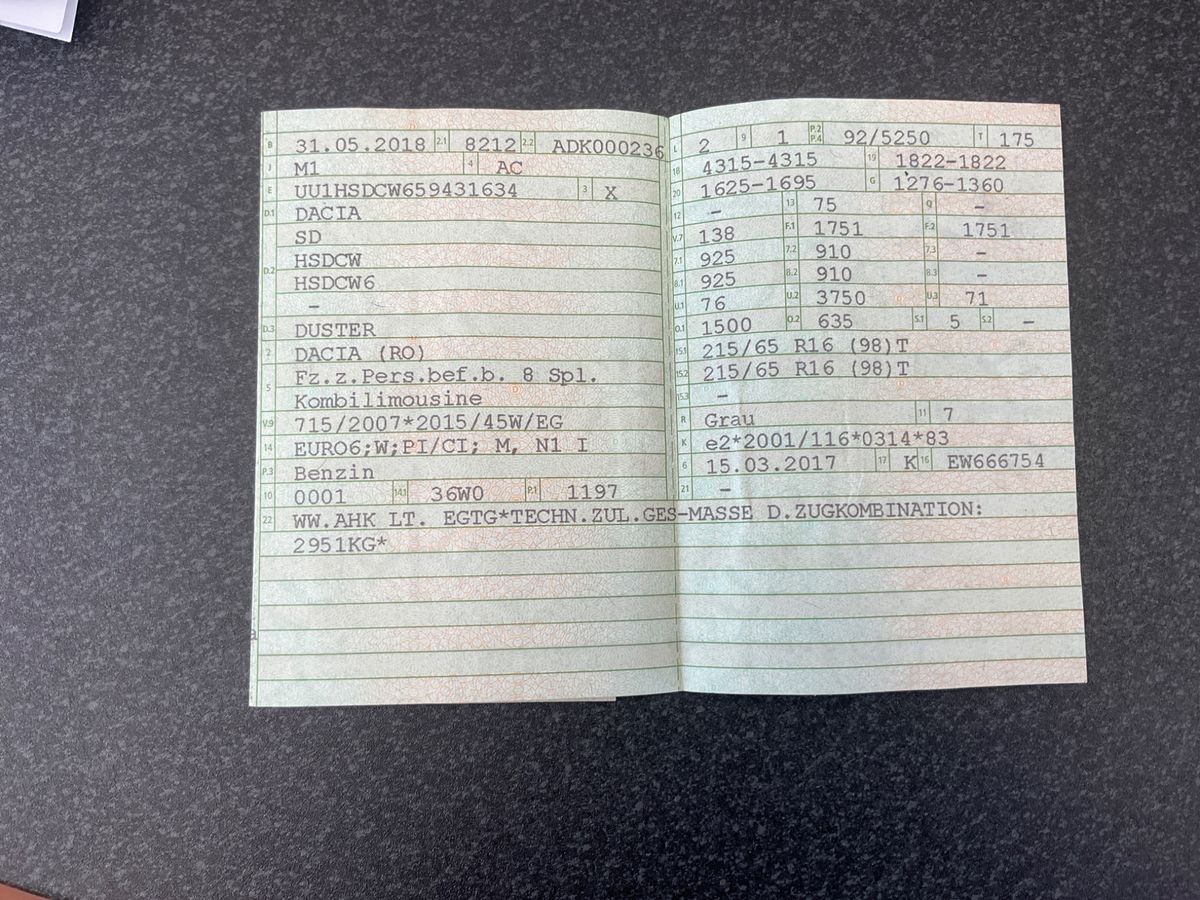 B 31.05.2018 2.1 8212 2.2 ADK000236
J M1 4 AC
E UU1HSDCW659431634 3 X
D.1 DACIA
SD
D.2 HSDCW
HSDCW6
–
D.3 DUSTER
2 DACIA (RO)
5 Fz.z.Pers.bef.b. 8 Spl.
Kombilimousine
V.9 715/2007*2015/45W/EG
14 EURO6;W;PI/CI; M, N1 I
P.3 Benzin
10 0001 14.1 36W0 P.1 1197
L 2 9 1 P.2 P.4 92/5250 T 175
18 4315-4315 19 1822-1822
20 1625-1695 G 1276-1360
12 – 13 75 Q –
V.7 138 F.1 1751 F.2 1751
7.1 925 7.2 910 7.3 –
8.1 925 8.2 910 8.3 –
U.1 76 U.2 3750 U.3 71
O.1 1500 O.2 635 S.1 5 S.2 –
15.1 215/65 R16 (98)T
15.2 215/65 R16 (98)T
15.3 –
R Grau 11 7
K e2*2001/116*0314*83
6 15.03.2017 17 K 16 EW666754
21 –
22 WW.AHK LT. EGTG*TECHN.ZUL.GES-MASSE D.ZUGKOMBINATION:
2951KG*